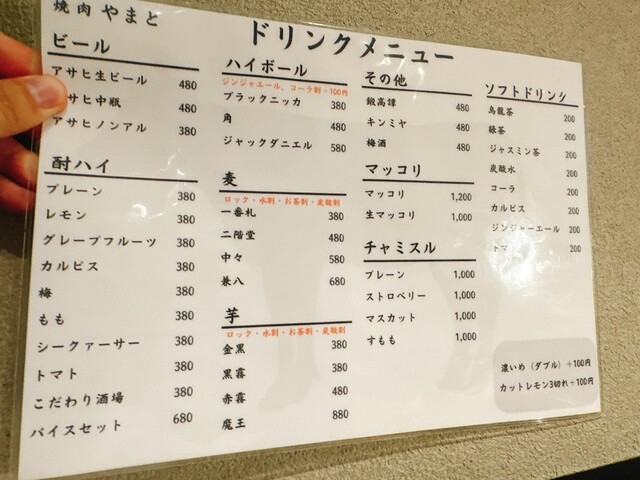 焼肉 やまと
ドリンクメニュー
ビール
アサヒ生ビール 480
サヒ中瓶 480
アサヒノンアル 380
酎ハイ
プレーン 380
レモン 380
グレープフルーツ 380
カルピス 380
梅 380
もも 380
シークァーサー 380
トマト 380
こだわり酒場 380
バイスセット 680
ハイボール
ジンジャエール、コーラ割+100円
ブラックニッカ 380
角 480
ジャックダニエル 580
麦
ロック・水割・お茶割・炭酸割
一番札 380
二階堂 480
中々 580
兼八 680
芋
ロック・水割・お茶割・炭酸割
金黒 380
黒霧 380
赤霧 480
魔王 880
その他
鍛高譚 480
キンミヤ 480
梅酒 480
マッコリ
マッコリ 1,200
生マッコリ 1,000
チャミスル
プレーン 1,000
ストロベリー 1,000
マスカット 1,000
すもも 1,000
ソフトドリンク
烏龍茶 200
緑茶 200
ジャスミン茶 200
炭酸水 200
コーラ 200
カルピス 200
ジンジャーエール 200
トマ 200
濃いめ(ダブル)+100円
カットレモン3切れ+100円